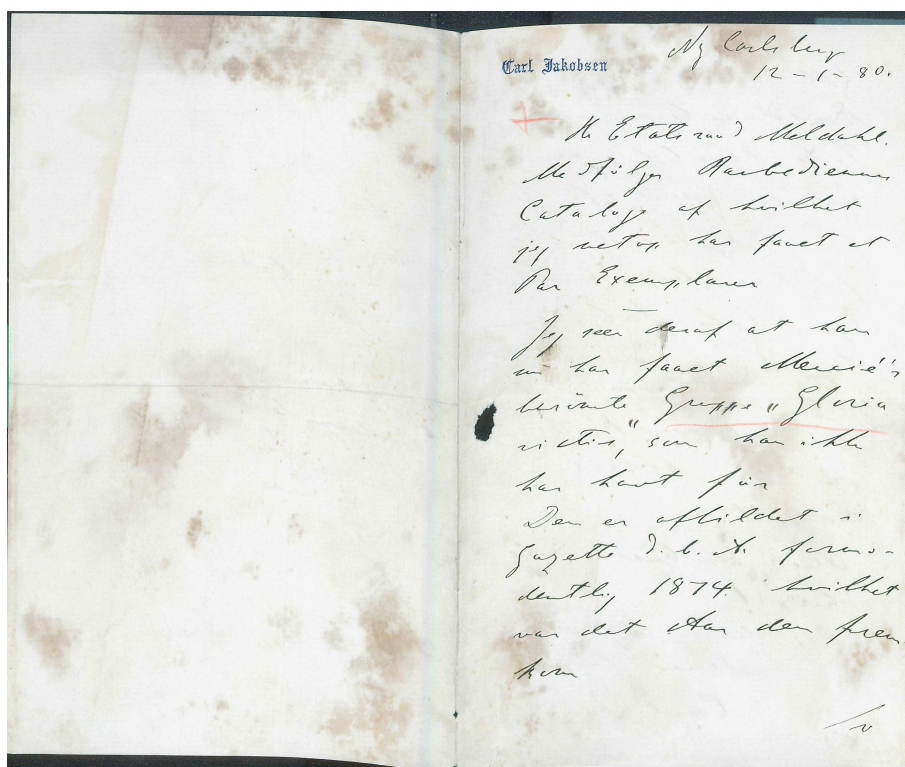 Carl Jakobsen
Ny Carlsberg
12-1-80.
Hr Etatsraad Meldahl.
Medfølger Barbediennes
Catalog af hvilket
jeg netop har faaet et
Par Exemplarer
Jeg seer deraf at han
nu har faaet Mercié's
berömte Gruppe "Gloria
victis", som han ikke
har havt før
Den er afbildet i
Gazette d. b. A. formo-
dentlig 1874. hvilket
var det Aar den frem
kom